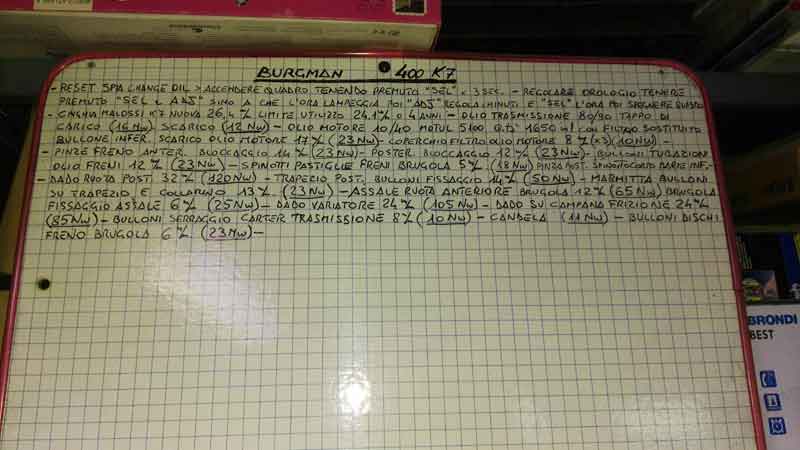 BURGMAN 400 K7
- RESET SPIA CHANGE OIL > ACCENDERE QUADRO TENENDO PREMUTO "SEL" x 3 SEC. - REGOLARE OROLOGIO TENERE
PREMUTO "SEL e ADJ" SINO A CHE L'ORA LAMPEGGIA POI "ADJ" REGOLA MINUTI E "SEL" L'ORA POI SPEGNERE QUADRO
- CINGHIA MALOSSI K7 NUOVA 26,4 % LIMITE UTILIZZO 24,1 % o 4 ANNI - OLIO TRASMISSIONE 80/90 TAPPO DI
CARICO (16 NW) SCARICO (12 NW) - OLIO MOTORE 10/40 MOTUL 5100 Q.TA' 1650 ml CON FILTRO SOSTITUITO
BULLONE INFER. SCARICO OLIO MOTORE 17 % (23 NW) - COPERCHIO FILTRO OLIO MOTORE 8 % (x3) (10 NW) -
- PINZE FRENO ANTER. BLOCCAGGIO 14 % (23 NW) - POSTER. BLOCCAGGIO 12 % (23 NW) - BULLONI TUBAZION
OLIO FRENI 12 % (23 NW) - SPINOTTI PASTIGLIE FRENI BRUGOLA 5 % (18 NW) PINZA POST. DADI E INF. -
- DADO RUOTA POST. 32 % (120 NW) - TRAPEZIO POST. BULLONI FISSAGGIO 14 % (50 NW) - MARMITTA BULLONI
SU TRAPEZIO E COLLARINO 13 % (23 NW) - ASSALE RUOTA ANTERIORE BRUGOLA 12 % (65 NW) BRUGOLA
FISSAGGIO ASSALE 6 % (25 NW) - DADO VARIATORE 24 % (105 NW) - DADO SU CAMPANA FRIZIONE 24 %
(85 NW) - BULLONI SERRAGGIO CARTER TRASMISSIONE 8 % (10 NW) - CANDELA (11 NW) - BULLONI DISCHI
FRENO BRUGOLA 6 % (23 NW) -
BRONDI
BEST